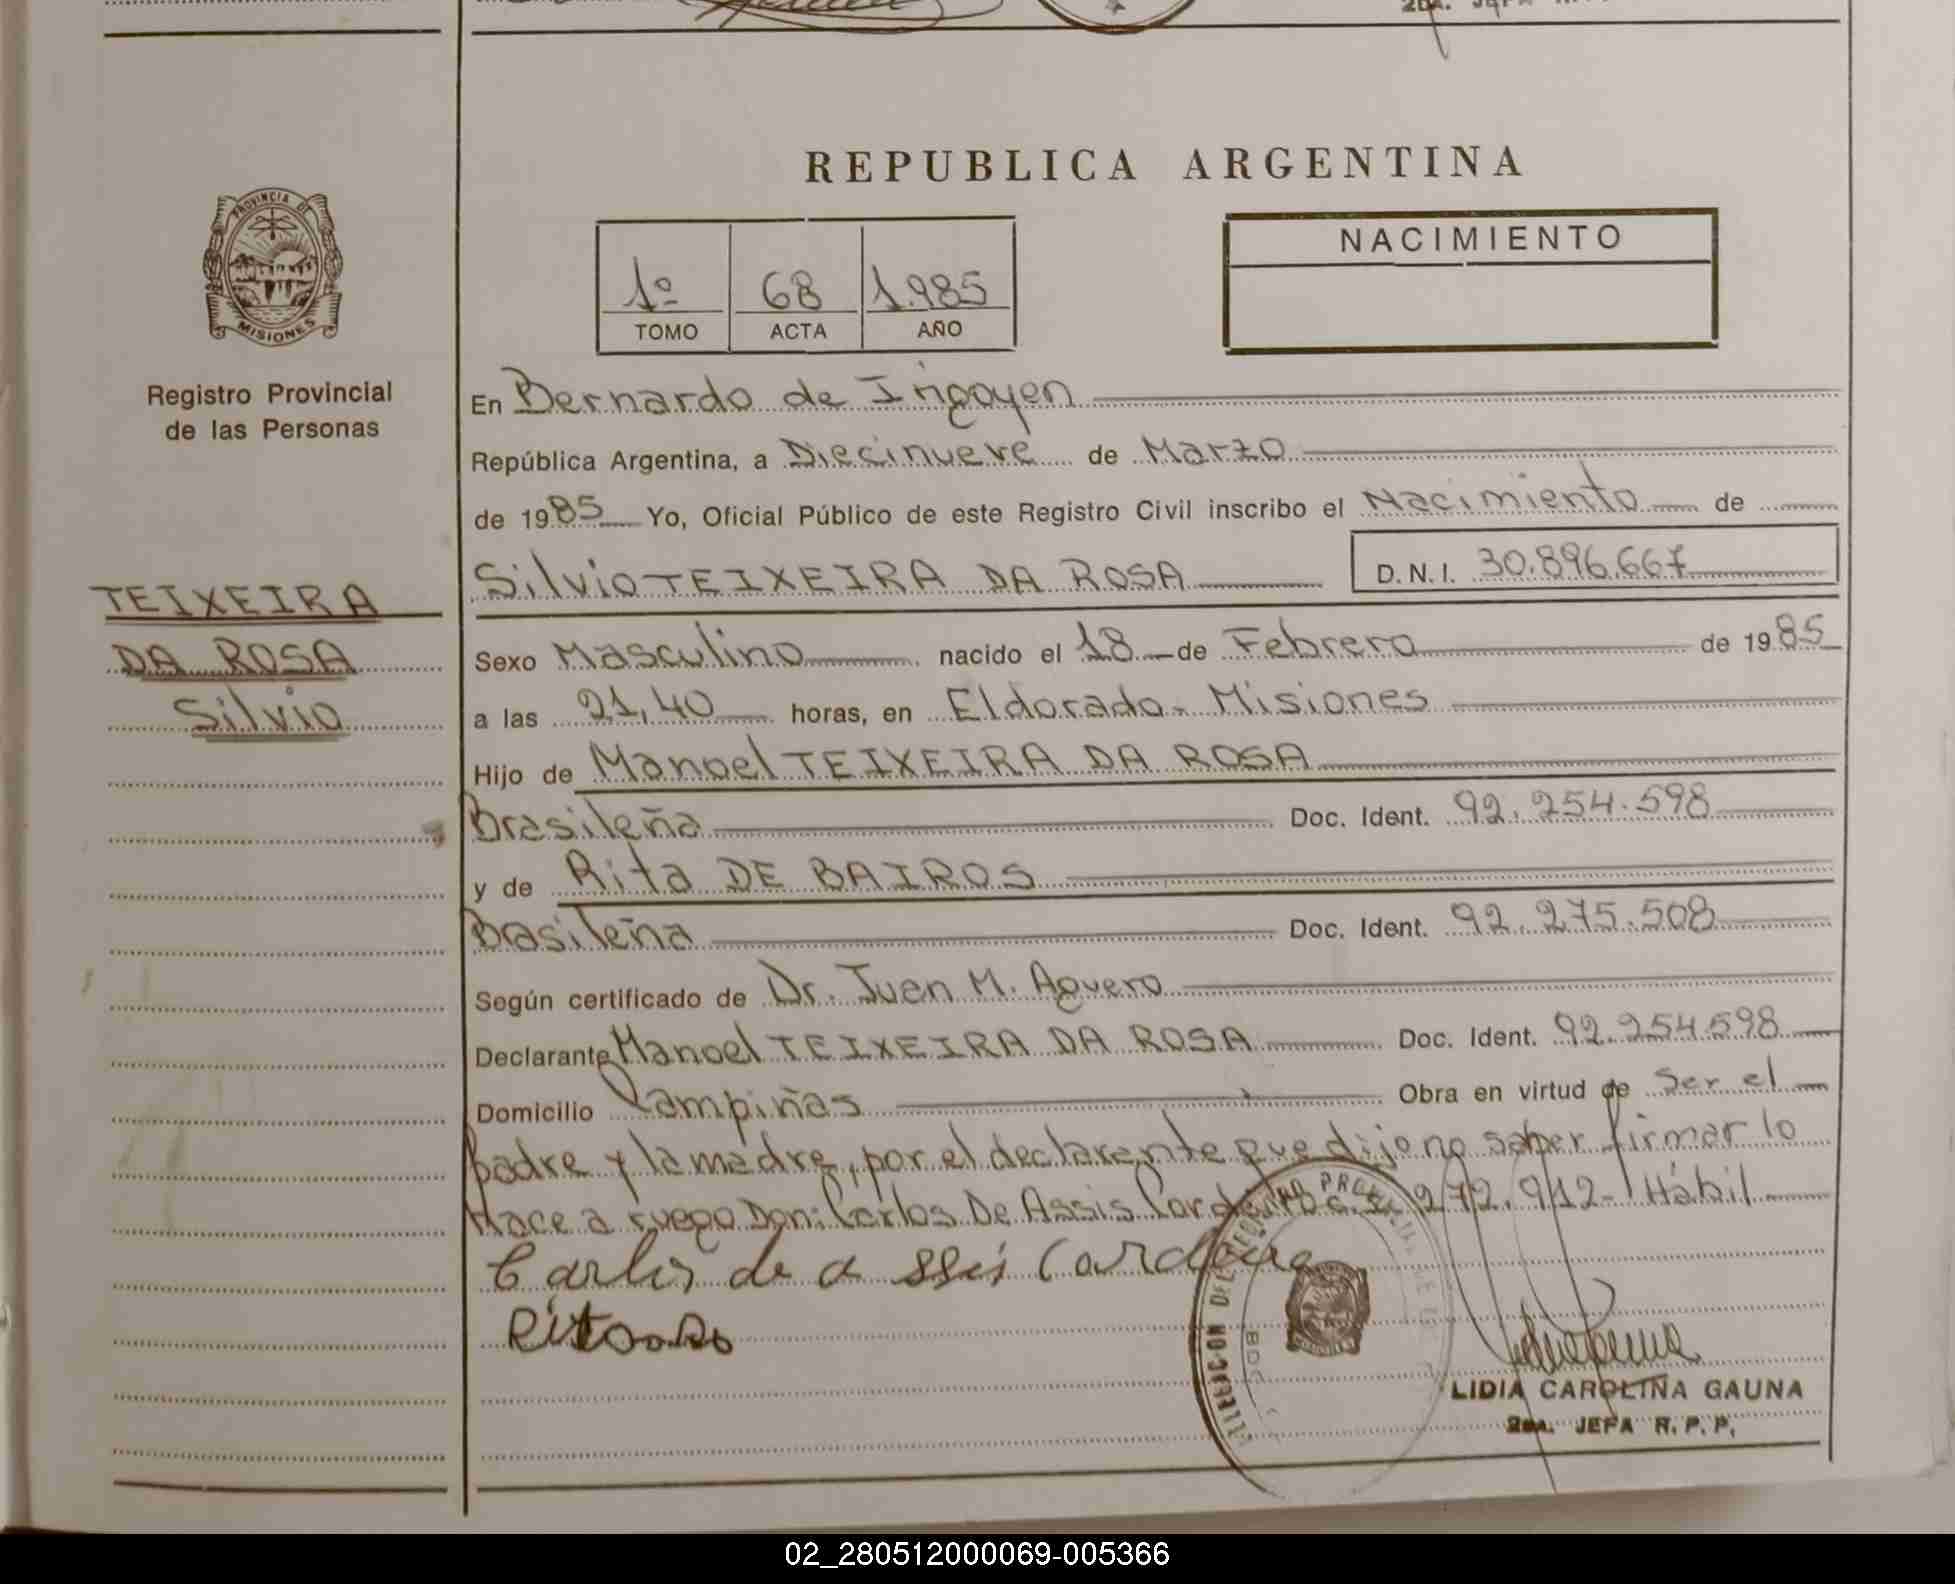 REPUBLICA ARGENTINA
PROVINCIA DE
MISIONES
Registro Provincial
de las Personas
TEIXEIRA
DA ROSA
Silvio
1º 68 1.985
TOMO ACTA AÑO
NACIMIENTO
En Bernardo de Irigoyen
República Argentina, a Diecinueve de Marzo
de 1985 Yo, Oficial Público de este Registro Civil inscribo el Nacimiento de
Silvio TEIXEIRA DA ROSA D.N.I. 30.896.667
Sexo Masculino nacido el 18 de Febrero de 1985
a las 21,40 horas, en Eldorado - Misiones
Hijo de Manoel TEIXEIRA DA ROSA
Brasileña Doc. Ident. 92.254.598
y de Rita DE BAIROS
Brasileña Doc. Ident. 92.275.508
Según certificado de Dr. Juan M. Aguero
Declarante Manoel TEIXEIRA DA ROSA Doc. Ident. 92.254.598
Domicilio Campiñas Obra en virtud de Ser el
padre y la madre, por el declarante que dijo no saber firmar lo
Hace a ruego Don: Carlos De Assis Cordeiro 272.912- Hábil
Carlos de assis
LIDIA CAROLINA GAUNA
2da. JEFA R.P.P.
02_280512000069-005366